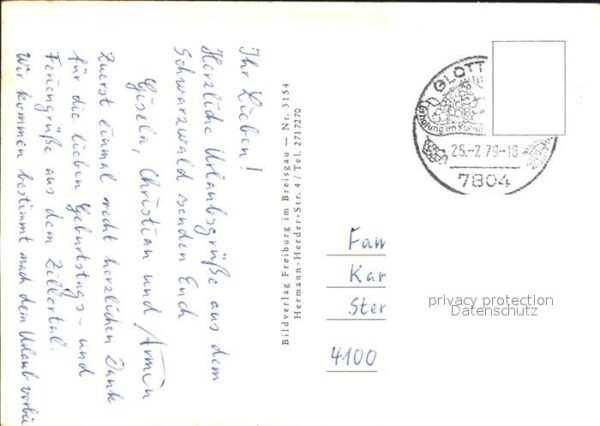 Ihr Lieben!
Herzliche Urlaubsgrüße aus dem
Schwarzwald senden Euch
Gisela, Christian und Armin
Zuerst einmal recht herzlichen Dank
für die lieben Geburtstags- und
Feriengrüße aus dem Zillertal.
Wir kommen bestimmt nach dem Urlaub vorbei
Bildverlag Freiburg im Breisgau — Nr. 3154
Hermann-Herder-Str. 4 / Tel. 2717270
GLOTT
Erholung im Kur
25.-7.79-18
7804
Fam
Kar
Ster
4100
privacy protection
Datenschutz